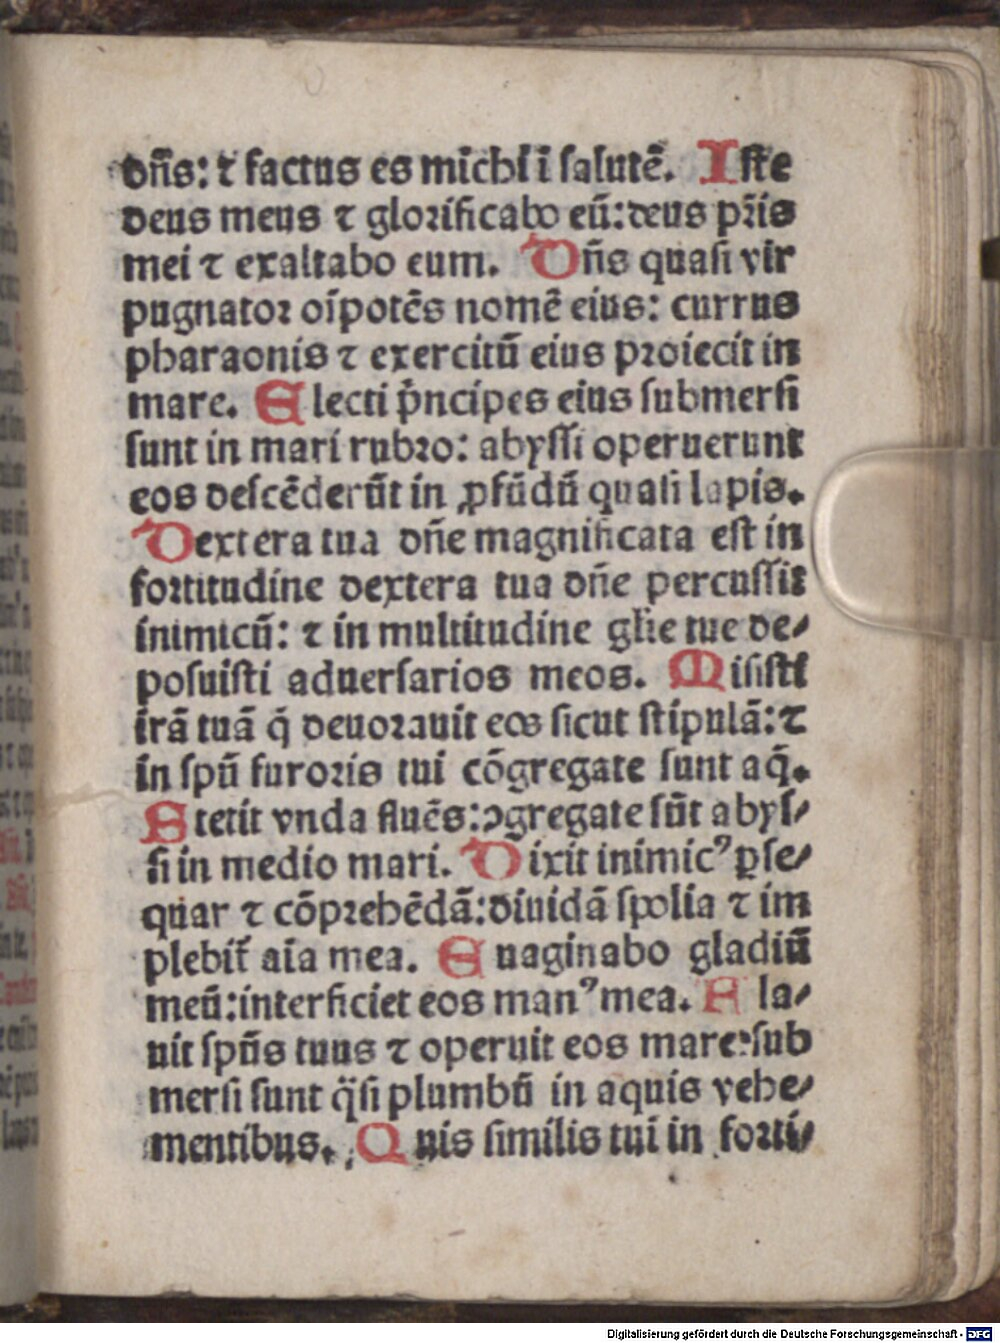 dn̄s: ⁊ factus es mīchi ī salutē. Iste
deus meus ⁊ glorificabo eū: deus pr̄is
mei ⁊ exaltabo eum. Dn̄s quasi vir
pugnator oīpotēs nomē eius: currus
pharaonis ⁊ exercitū eius proiecit in
mare. Electi p̄ncipes eius submersi
sunt in mari rubro: abyssi operuerunt
eos descēderūt in ꝓfūdū quasi lapis.
Dextera tua dn̄e magnificata est in
fortitudine dextera tua dn̄e percussit
inimicū: ⁊ in multitudine gl̄ie tue de⸗
posuisti aduersarios meos. Misisti
irā tuā q̄ deuorauit eos sicut stipulā: ⁊
in spū furoris tui cōgregate sunt aq̄.
Stetit vnda fluēs: ꝯgregate sūt abys⸗
si in medio mari. Dixit inimicꝰ ꝑse⸗
quar ⁊ cōprehēdā: diuidā spolia ⁊ im
plebit᷑ aīa mea. Euaginabo gladiū
meū: interficiet eos manꝰ mea. Fla⸗
uit spūs tuus ⁊ operuit eos mare: sub
mersi sunt q̄si plumbū in aquis vehe⸗
mentibus. Quis similis tui in forti⸗
Digitalisierung gefördert durch die Deutsche Forschungsgemeinschaft - DFG